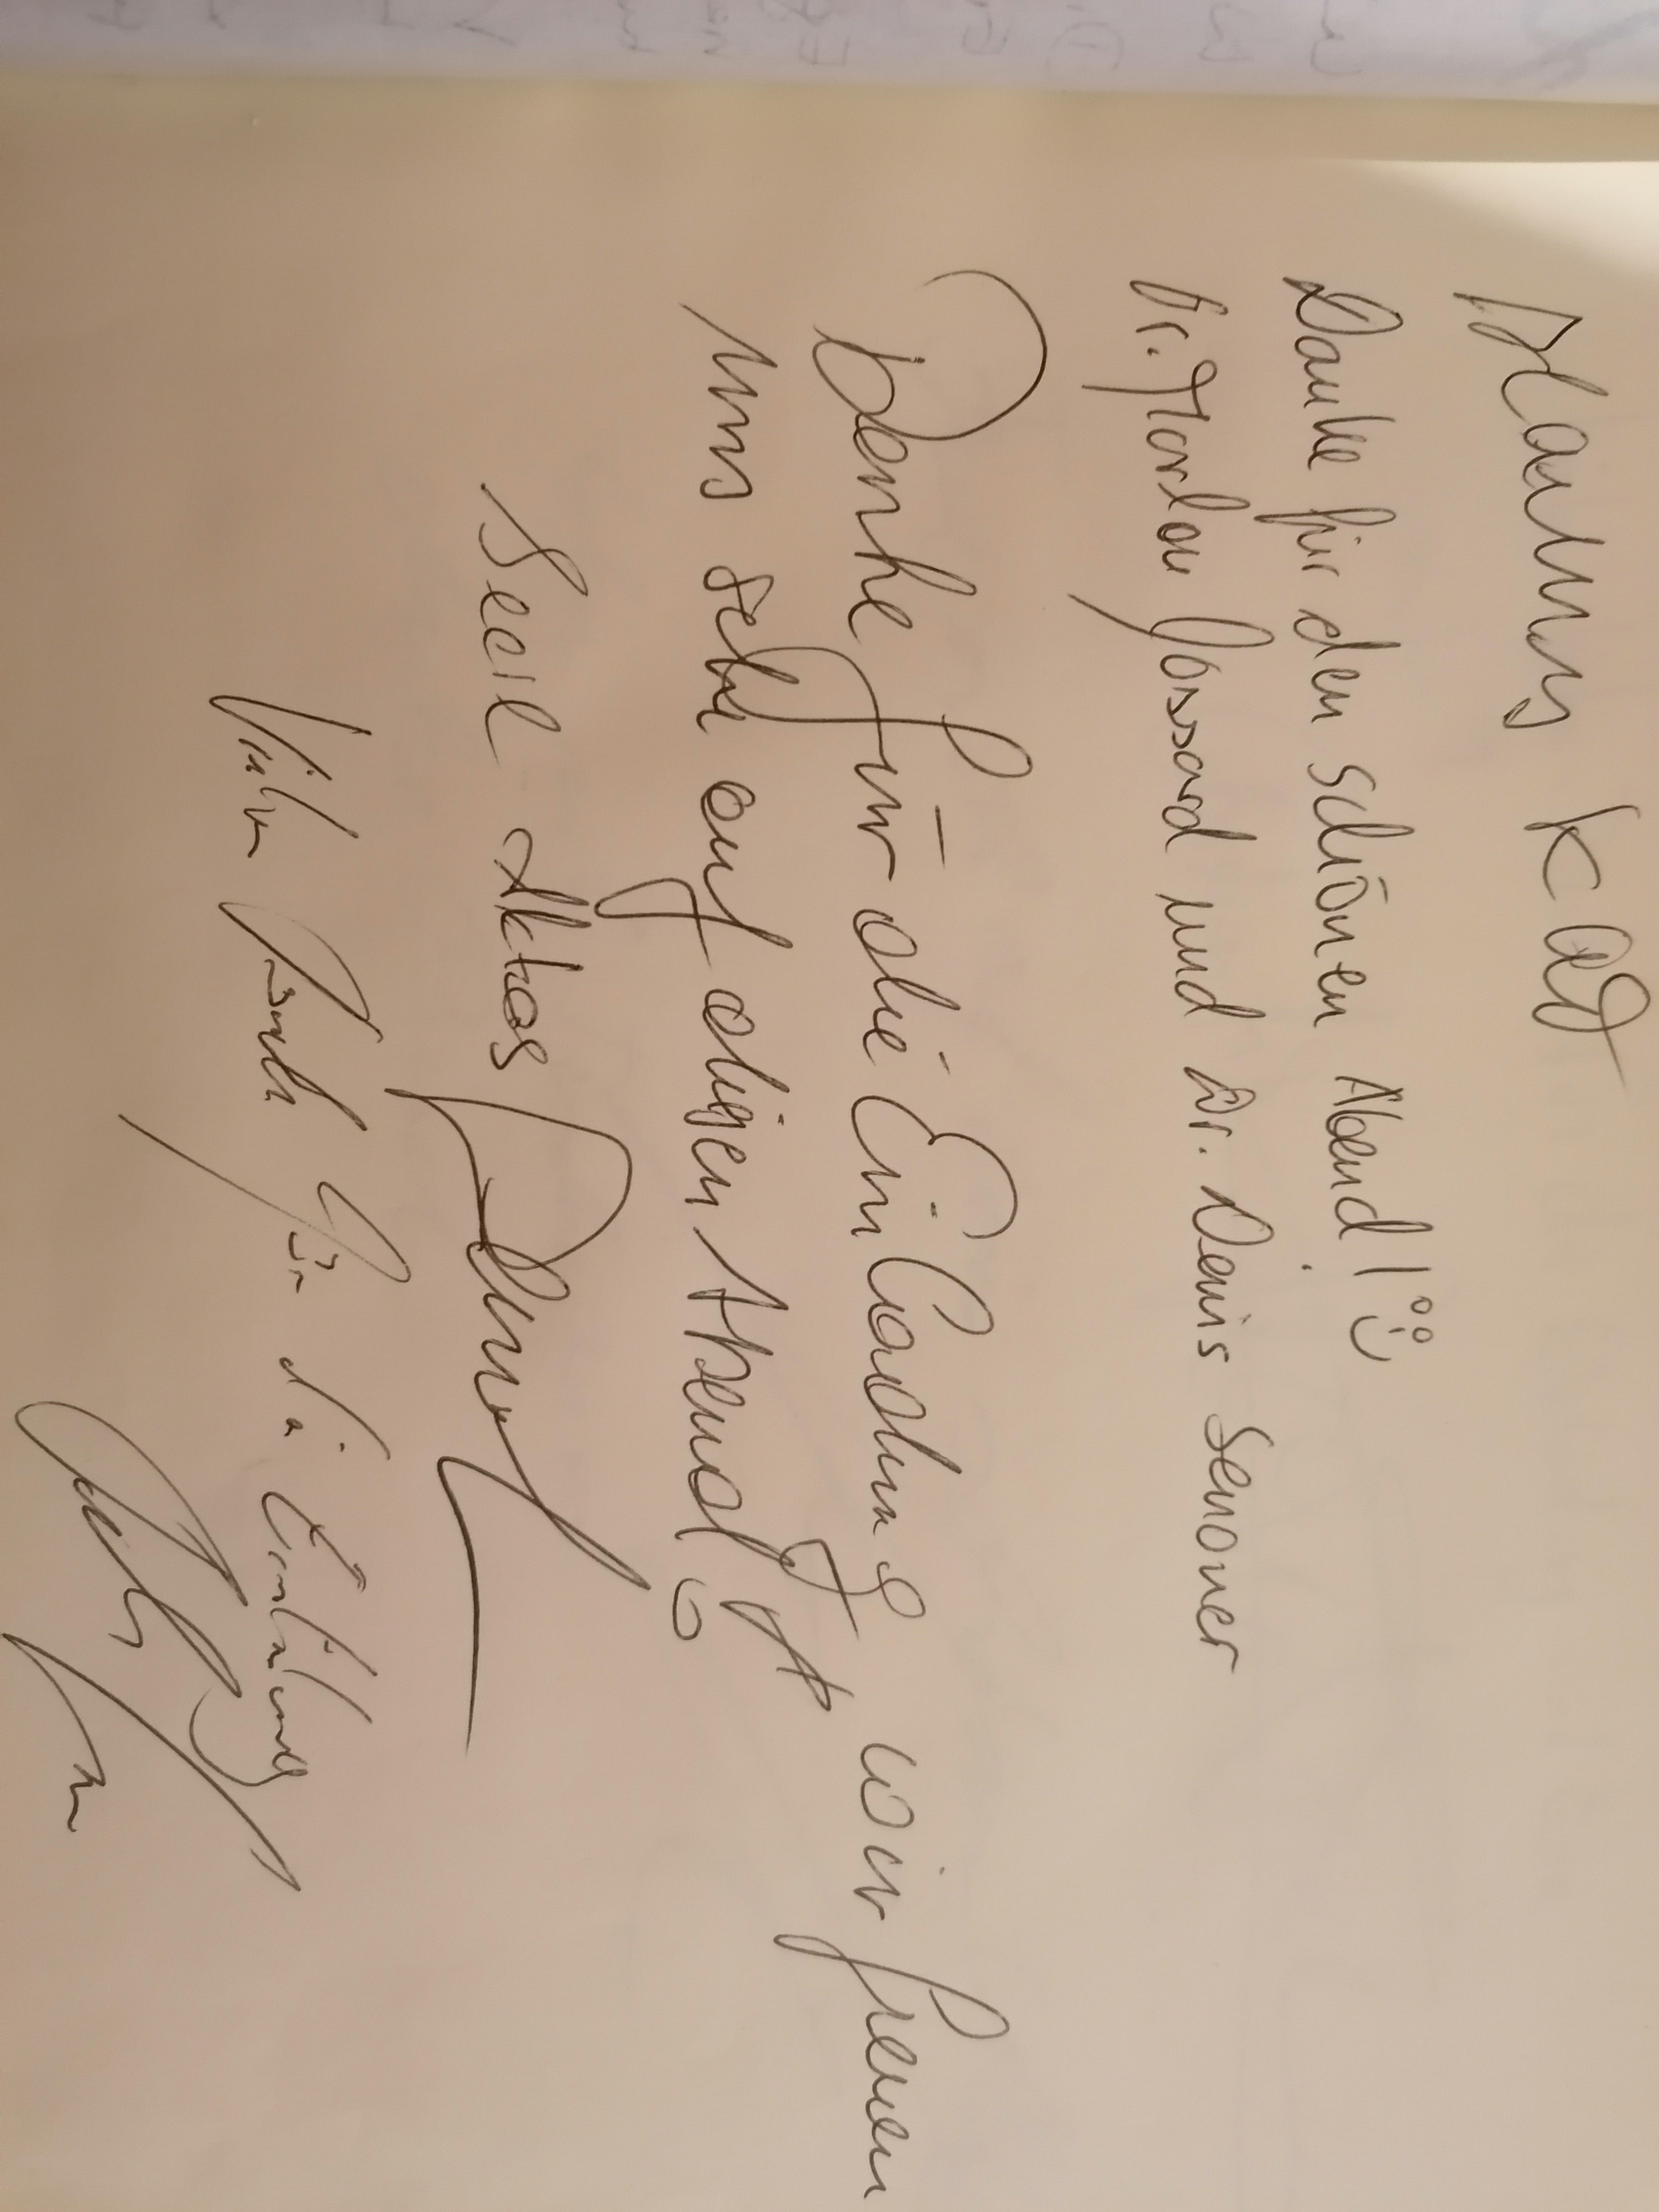 Danke für den schönen Abend!
Dr. Marlou Jossard und Dr. Denis Senoner
Danke für die Einladung wir freuen
uns sehr auf diesen Abend
Secil Aktas
Vielen Dank für die Einladung